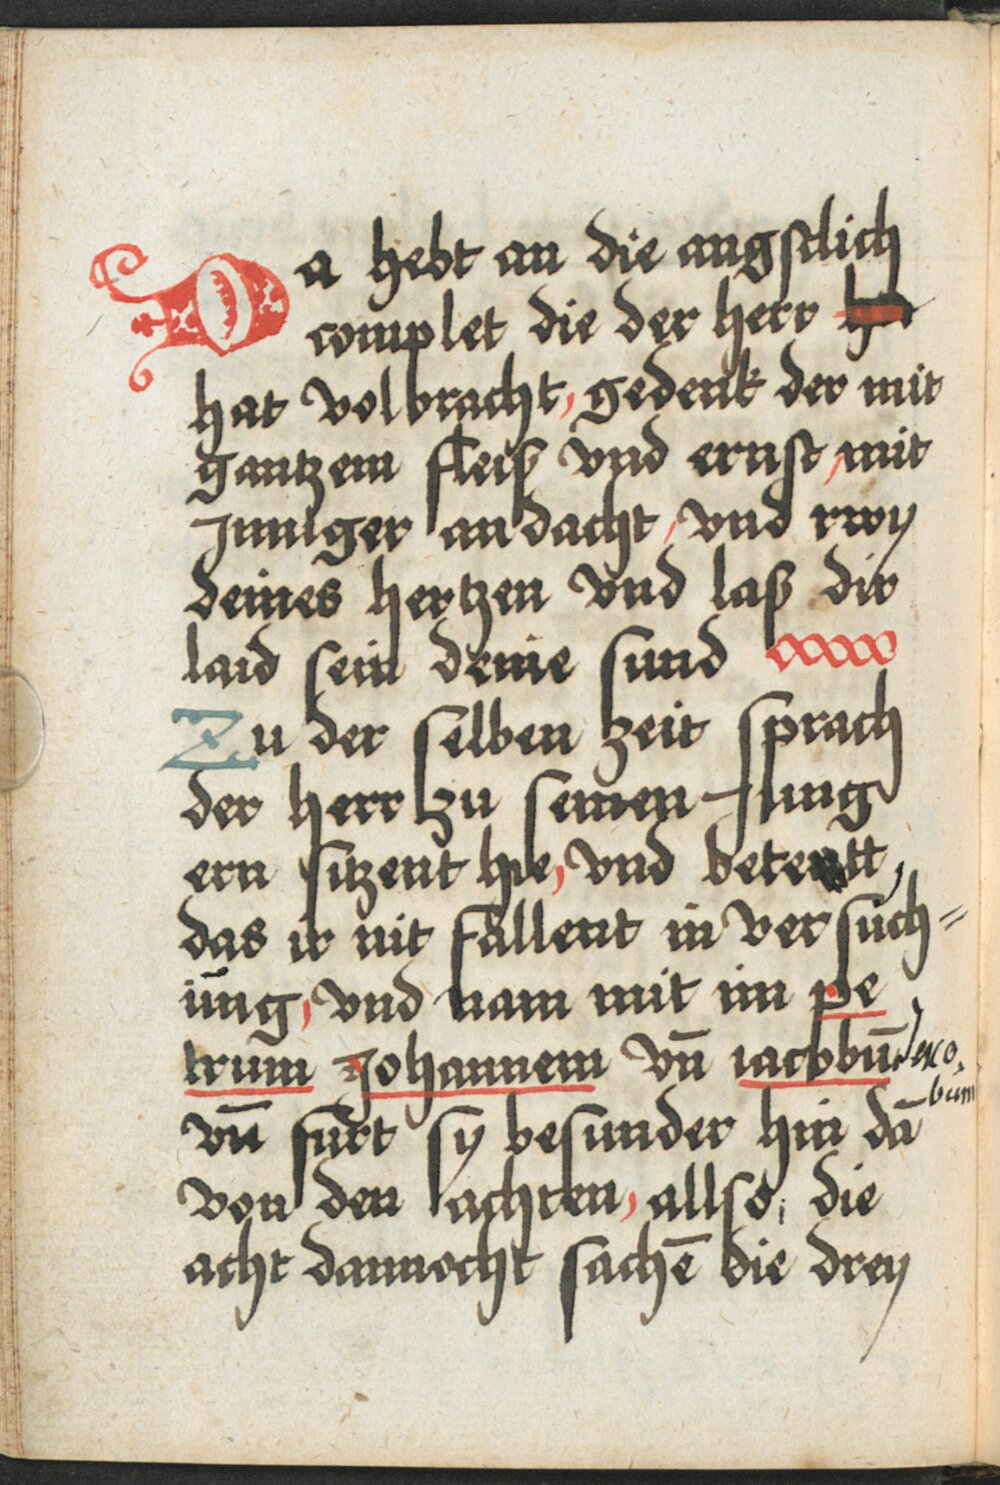 Da hebt an die angstlich
complet die der herr
hat volbracht, gedenk der mit
gantzem fleiß vnd ernst, mit
Jnniger andacht, vnd rwy
deines hertzen vnd laß dir
laid sein deine sund
Zu der selben zeit sprach
der herr zu seinen Jung
ern sitzent hie, vnd betentt,
das ir nit fallent in versuch=
ŭng, vnd nam mit im pe
trum Johannem vn̄ iacobū
Jaco,
bum
vn̄ furt sy besunder hin dā
von den achten, allso, die
acht dannocht sachē die drey